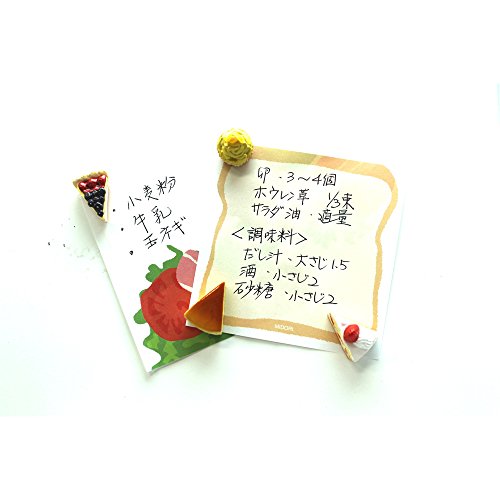 ・小麦粉
・牛乳
・玉ネギ
卵・3〜4個
ホウレン草 1/3束
サラダ油・適量
<調味料>
だし汁・大さじ1.5
酒・小さじ2
砂糖・小さじ2
MIDORI